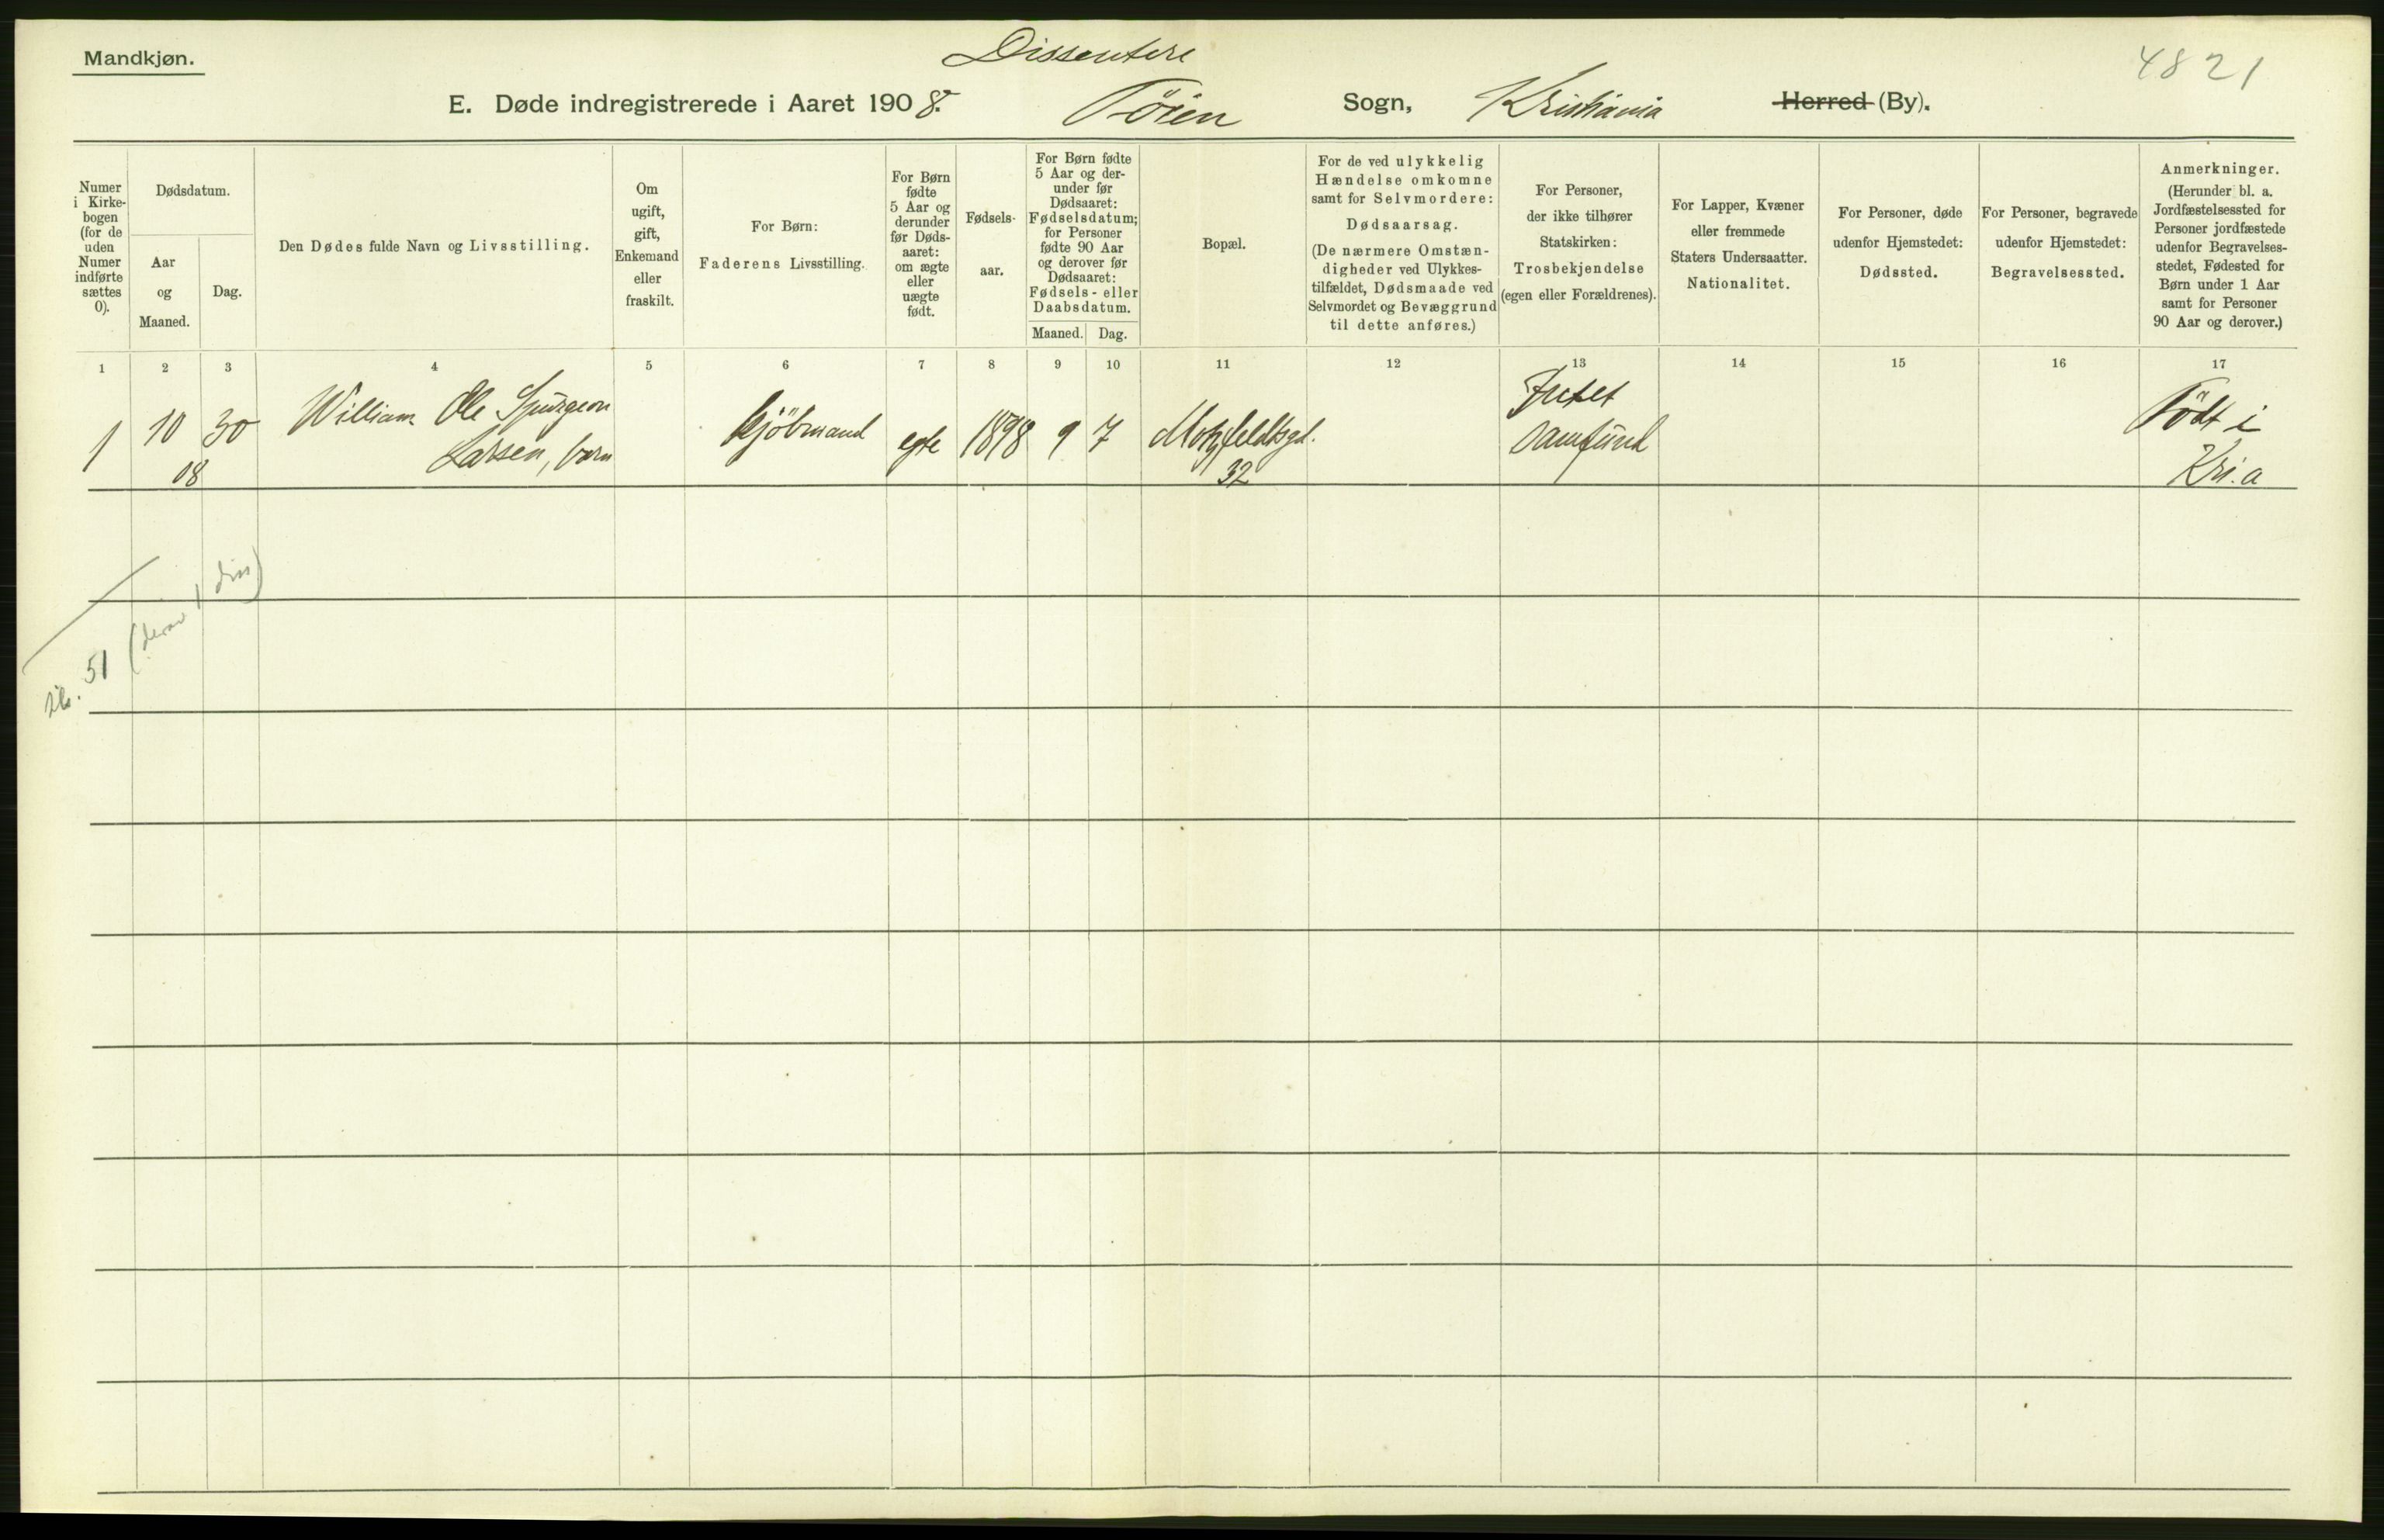 Mandkjøn.
Dissentere
4821
E. Døde indregistrerede i Aaret 1908. Töien Sogn, Kristiania Herred (By).
Numer i Kirke-bogen (for de uden Numer indførte sættes 0).
Dødsdatum.
Aar og Maaned.
Dag.
Den Dødes fulde Navn og Livsstilling.
Om ugift, gift, Enkemand eller fraskilt.
For Børn: Faderens Livsstilling.
For Børn fødte 5 Aar og derunder før Døds-aaret: om ægte eller uægte født.
Fødsels-aar.
For Børn fødte 5 Aar og der-under før Dødsaaret: Fødselsdatum; for Personer fødte 90 Aar og derover før Dødsaaret: Fødsels- eller Daabsdatum.
Maaned.
Dag.
Bopæl.
For de ved ulykkelig Hændelse omkomne samt for Selvmordere: Dødsaarsag. (De nærmere Omstæn-digheder ved Ulykkes-tilfældet, Dødsmaade ved Selvmordet og Bevæggrund til dette anføres.)
For Personer, der ikke tilhører Statskirken: Trosbekjendelse (egen eller Forældrenes).
For Lapper, Kvæner eller fremmede Staters Undersaatter. Nationalitet.
For Personer, døde udenfor Hjemstedet: Dødssted.
For Personer, begravede udenfor Hjemstedet: Begravelsessted.
Anmerkninger. (Herunder bl. a. Jordfæstelsessted for Personer jordfæstede udenfor Begravelses-stedet, Fødested for Børn under 1 Aar samt for Personer 90 Aar og derover.)
1 2 3 4 5 6 7 8 9 10 11 12 13 14 15 16 17
1 10 30 William Ole Spurgeon Kjöbmand egte 1898 9 7 Motzfeldtsgd. Födt i
08 Larsen, barn 32 Samfund Kri.a
51 (derav 1 diss)